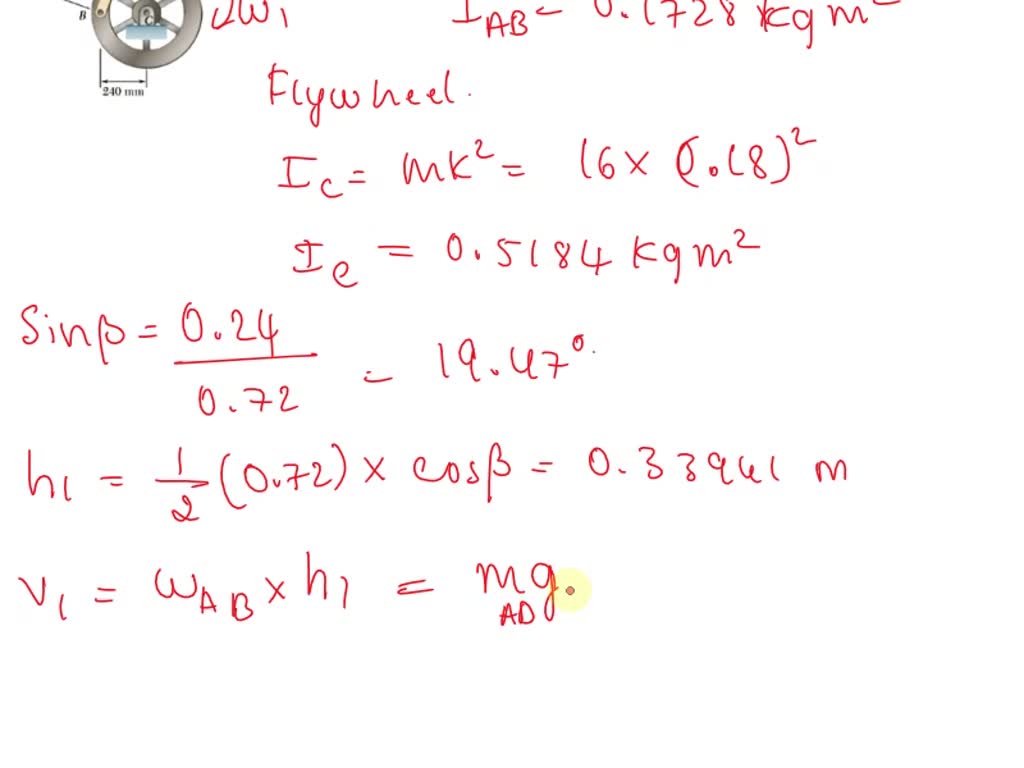 B C ω₁ I_AB = 0.1728 kg m²
240 mm
Flywheel.
I_C = mk² = 16 × (0.18)²
I_C = 0.5184 kg m²
Sinβ = 0.24 / 0.72 = 19.47°
h₁ = 1/2 (0.72) × cosβ = 0.33941 m
V₁ = ω_AB × h₁ = m_AD g.